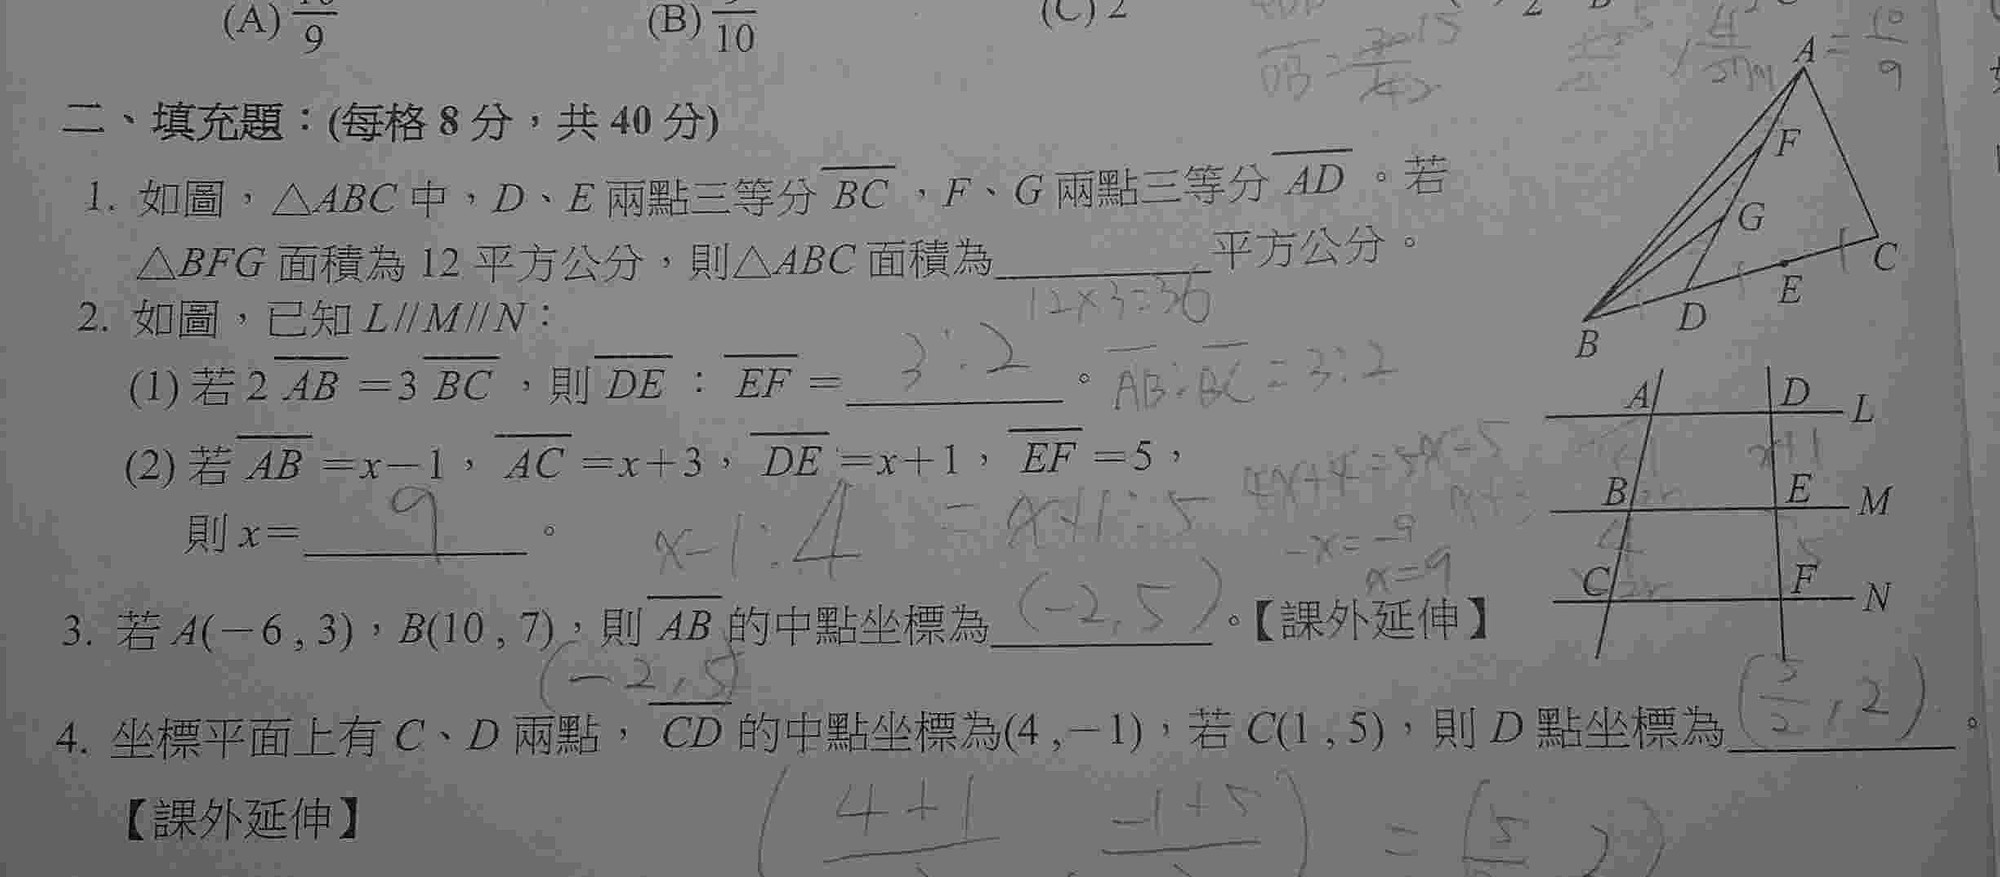 (A) 10/9 (B) 9/10 (C) 2
二、填充題：(每格 8 分，共 40 分)
1. 如圖，△ABC 中，D、E 兩點三等分 BC，F、G 兩點三等分 AD。若
△BFG 面積為 12 平方公分，則△ABC 面積為________平方公分。
12×3=36
2. 如圖，已知 L//M//N：
(1) 若 2 AB = 3 BC，則 DE：EF = 3:2。 AB:BC=3:2
(2) 若 AB = x－1，AC = x＋3，DE = x＋1，EF = 5，
4x+4=5x-5
則 x = 9。 x-1:4 = x+1:5
-x=-9
x=9
3. 若 A(－6 , 3)，B(10 , 7)，則 AB 的中點坐標為 (-2,5)。【課外延伸】
(-2,5)
4. 坐標平面上有 C、D 兩點，CD 的中點坐標為(4 ,－1)，若 C(1 , 5)，則 D 點坐標為 (5/2, 2)。
【課外延伸】
A
F
G
C
E
D
B
A D L
x+1
B E M
4 5
C F N